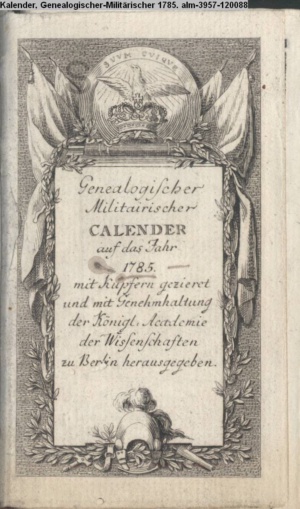 Kalender, Genealogischer-Militärischer 1785, alm-3957-120088
SUUM CUIQUE
Genealogischer
Militairischer
CALENDER
auf das Jahr
1785.
mit Kupfern gezieret
und mit Genehmhaltung
der Königl. Academie
der Wissenschaften
zu Berlin herausgegeben.